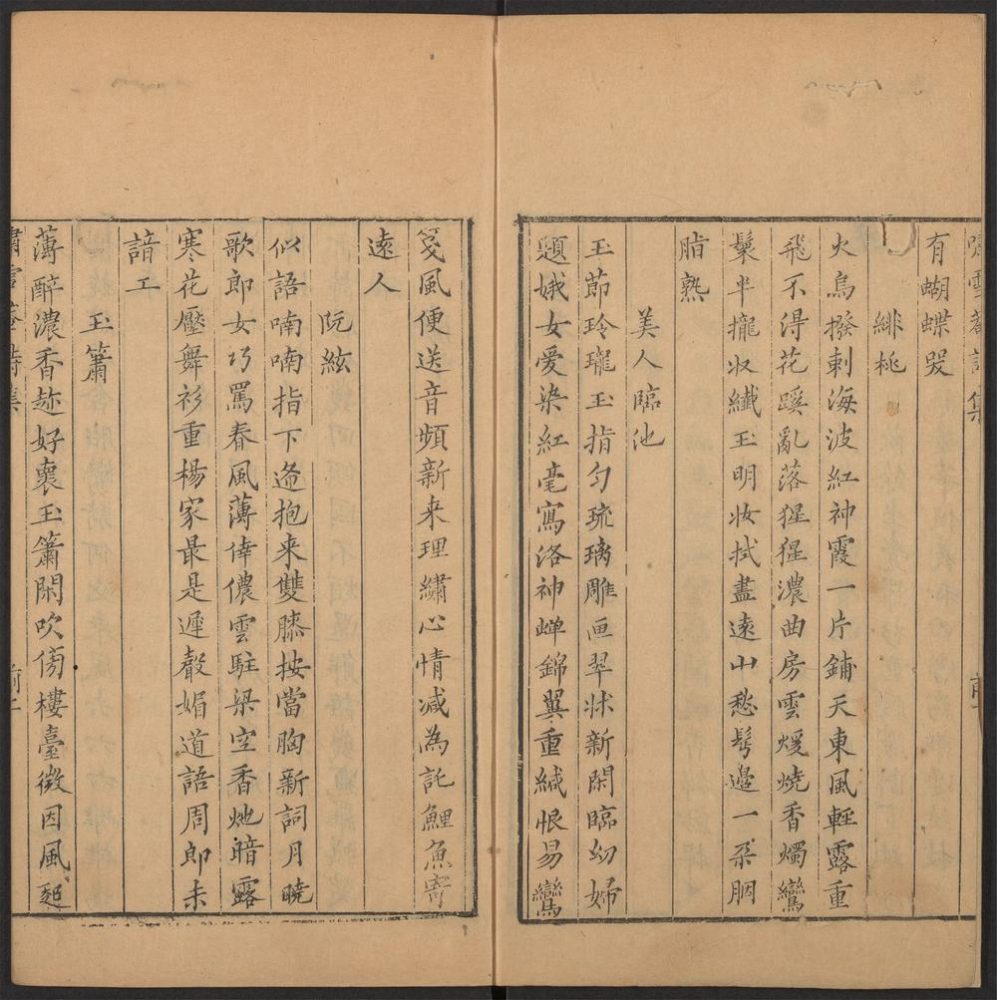 嘯雪菴詩集
有蝴蝶哭
緋桃
火鳥撥刺海波紅神霞一片鋪天東風輕露重
飛不淂花蹊亂落猩猩濃曲房雲煖燒香燭鸞
鬟半攏収纖玉明妆拭盡遠山愁髩邉一朶胭
脂熟
美人臨池
玉節玲瓏玉指匀琉璃雕匣翠牀新閑臨㓜婦
題娥女愛染紅毫寫洛神蝉錦翼重緘恨易鸞
箋風便送音頻新来理繡心情減為託鯉魚寄
遠人
阮絃
似語喃喃指下逰抱来雙膝按當胸新詞月曉
歌郎女巧罵春風薄倖儂雲駐梁空香灺暗露
寒花壓舞衫重楊家最是遲聲媚道語周郎未
諳工
玉簫
薄醉濃香趂好裏玉簫閑吹傍樓臺微因風起
嘯雪菴詩集
前二